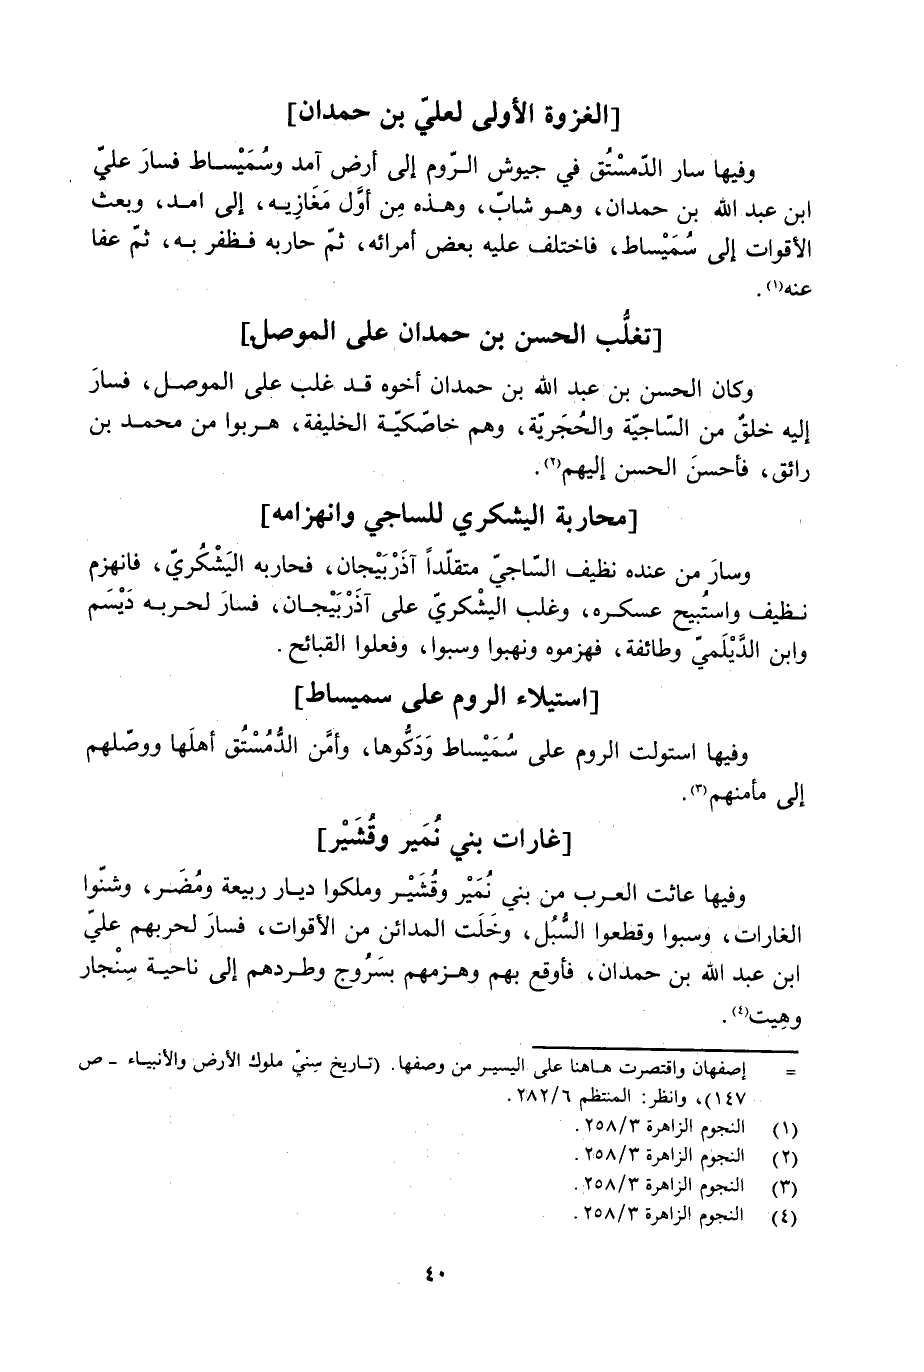 [الغزوة الأولى لعليّ بن حمدان]
وفيها سار الدّمسْتُق في جيوش الرّوم إلى أرض آمد وسُمَيْساط فسارَ عليّ
ابن عبد الله بن حمدان، وهو شابّ، وهذه مِن أوَّل مَغَازِيه، إلى امد، وبعث
الأقوات إلى سُمَيْساط، فاختلف عليه بعض أمرائه، ثمّ حاربه فظفر به، ثمّ عفا
عنه(١).
[تغلُّب الحسن بن حمدان على الموصل]
وكان الحسن بن عبد الله بن حمدان أخوه قد غلب على الموصل، فسارَ
إليه خلقٌ من السّاجيّة والحُجَريّة، وهم خاصّكيّة الخليفة، هربوا من محمد بن
رائق، فأحسنَ الحسن إليهم(٢).
[محاربة اليشكري للساجي وانهزامه]
وسارَ من عنده نظيف السّاجيّ متقلّداً آذَرْبَيْجان، فحاربه اليَشْكُريّ، فانهزم
نظيف واستُبيح عسكره، وغلب اليشْكريّ على آذَرْبَيْجان، فسارَ لحربه دَيْسَم
وابن الدَّيْلَميّ وطائفة، فهزموه ونهبوا وسبوا، وفعلوا القبائح.
[استيلاء الروم على سميساط]
وفيها استولت الروم على سُمَيْساط وَدَكُّوها، وأمَّن الدُّمُسْتُق أهلَها ووصّلهم
إلى مأمنهم(٣).
[غارات بني نُمَير وقُشَيْر]
وفيها عاثت العرب من بني نُمَيْر وقُشَيْر وملكوا ديار ربيعة ومُضَر، وشنّوا
الغارات، وسبوا وقطعوا السُّبُل، وخَلَت المدائن من الأقوات، فسارَ لحربهم عليّ
ابن عبد الله بن حمدان، فأوقع بهم وهزمهم بسَرُوج وطردهم إلى ناحية سِنْجار
وهِيت(٤).
= إصفهان واقتصرت هاهنا على اليسير من وصفها. (تاريخ سِنيّ ملوك الأرض والأنبياء - ص
١٤٧)، وانظر: المنتظم ٢٨٢/٦.
(١) النجوم الزاهرة ٢٥٨/٣.
(٢) النجوم الزاهرة ٢٥٨/٣.
(٣) النجوم الزاهرة ٢٥٨/٣.
(٤) النجوم الزاهرة ٢٥٨/٣.
٤٠